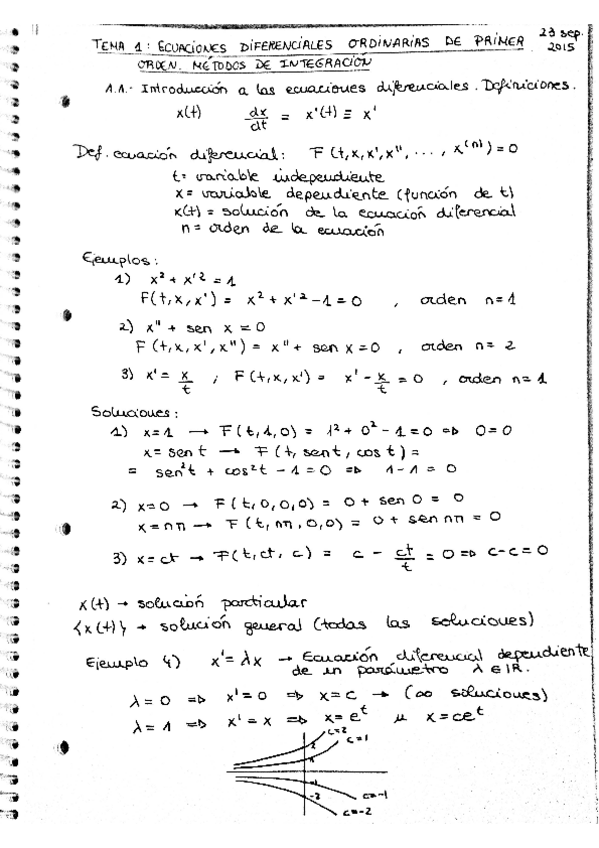 23 sep.
2015
TEMA 1: ECUACIONES DIFERENCIALES ORDINARIAS DE PRIMER
ORDEN. MÉTODOS DE INTEGRACIÓN
1.1.- Introducción a las ecuaciones diferenciales. Definiciones.
x(t) dx/dt = x'(t) ≡ x'
Def. ecuación diferencial: F(t,x,x',x'', ..., x^(n)) = 0
t = variable independiente
x = variable dependiente (función de t)
x(t) = solución de la ecuación diferencial
n = orden de la ecuación
Ejemplos:
1) x² + x'² = 1
F(t,x,x') = x² + x'² - 1 = 0 , orden n = 1
2) x'' + sen x = 0
F(t,x,x',x'') = x'' + sen x = 0 , orden n = 2
3) x' = x/t ; F(t,x,x') = x' - x/t = 0 , orden n = 1
Soluciones:
1) x=1 → F(t,1,0) = 1² + 0² - 1 = 0 ⇒ 0=0
x = sen t → F(t, sen t, cos t) =
= sen²t + cos²t - 1 = 0 ⇒ 1-1 = 0
2) x=0 → F(t,0,0,0) = 0 + sen 0 = 0
x=nπ → F(t,nπ,0,0) = 0 + sen nπ = 0
3) x=ct → F(t,ct,c) = c - ct/t = 0 ⇒ c-c=0
x(t) → solución particular
{x(t)} → solución general (todas las soluciones)
Ejemplo 4) x' = λx → Ecuación diferencial dependiente
de un parámetro λ ∈ ℝ.
λ = 0 ⇒ x' = 0 ⇒ x = c → (∞ soluciones)
λ = 1 ⇒ x' = x ⇒ x = e^t x = ce^t
c=2
c=1
2
1
-1
-2
c=-1
c=-2